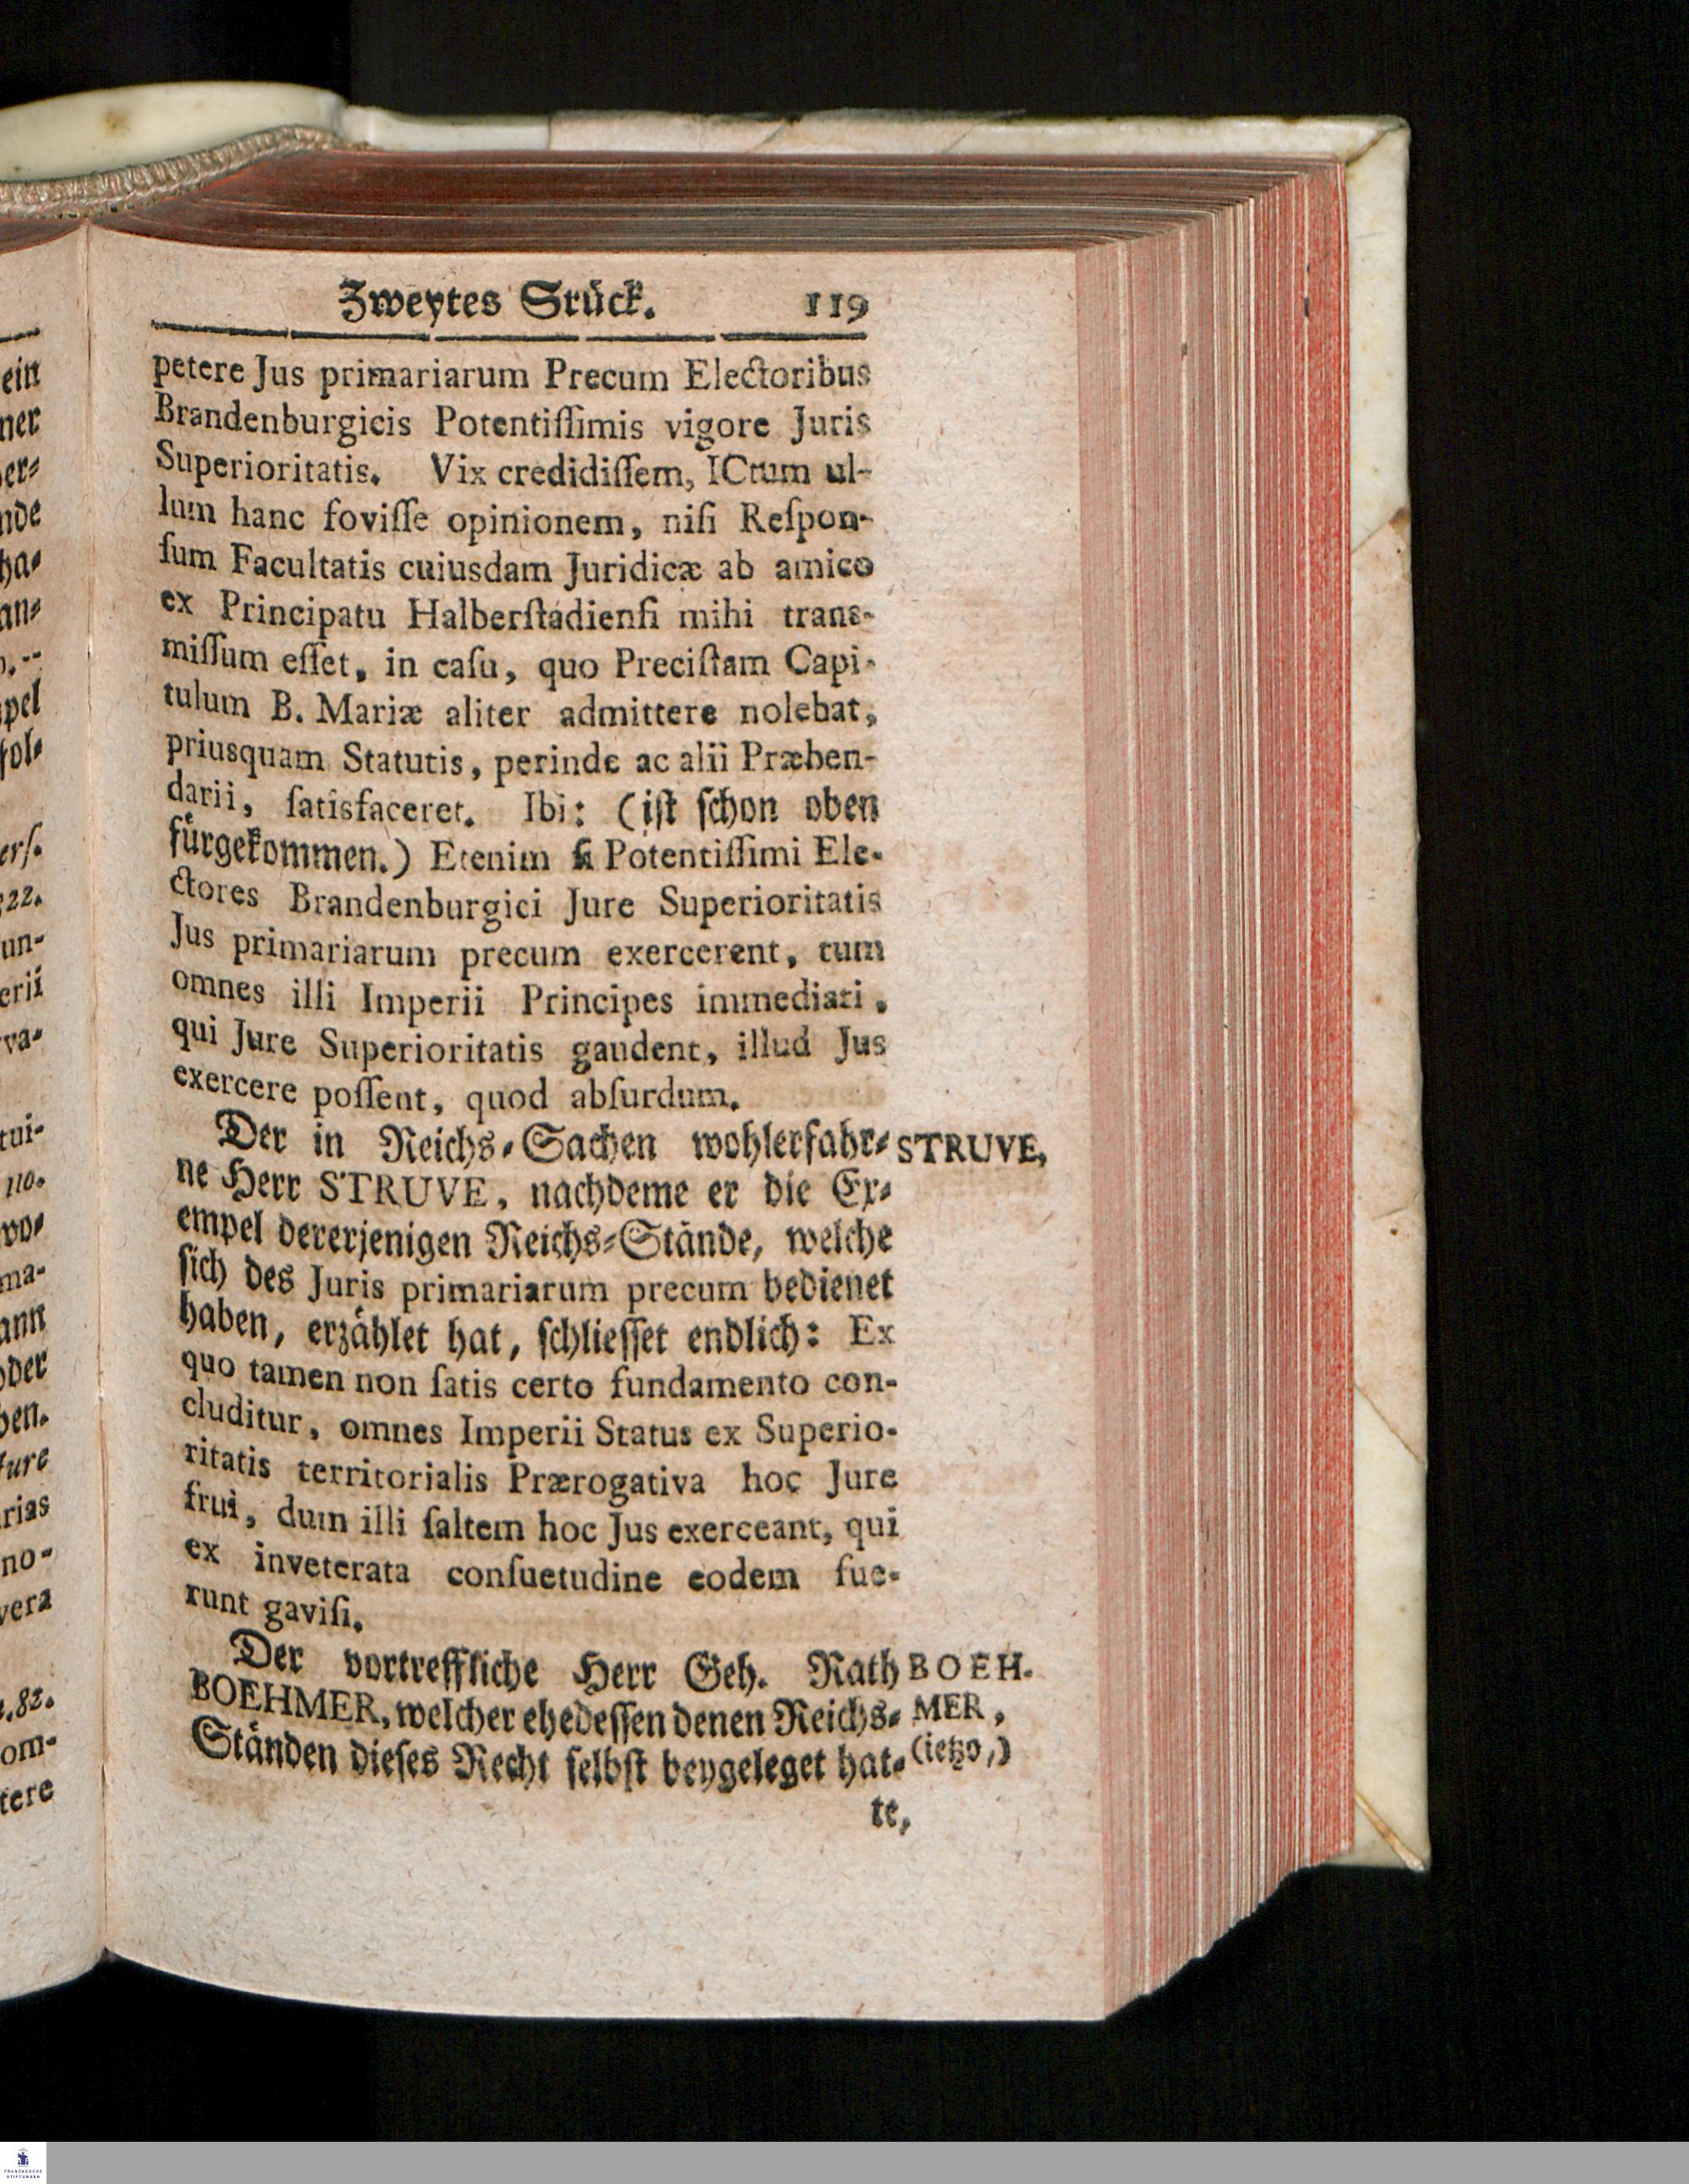 Zweytes Stück. 119
petere Jus primariarum Precum Electoribus
Brandenburgicis Potentiſſimis vigore Juris
Superioritatis. Vix credidiſſem, ICtum ul-
lum hanc foviſſe opinionem, niſi Reſpon-
ſum Facultatis cuiusdam Juridicæ ab amico
ex Principatu Halberſtadienſi mihi trans-
miſſum eſſet, in caſu, quo Preciſtam Capi-
tulum B. Mariæ aliter admittere nolebat,
priusquam Statutis, perinde ac alii Præben-
darii, ſatisfaceret. Ibi: (iſt ſchon oben
fürgekommen.) Etenim ſi Potentiſſimi Ele-
ctores Brandenburgici Jure Superioritatis
Jus primariarum precum exercerent, tum
omnes illi Imperii Principes immediati,
qui Jure Superioritatis gaudent, illud Jus
exercere poſſent, quod abſurdum.
Der in Reichs-Sachen wohlerfahr- STRUVE,
ne Herr STRUVE, nachdeme er die Ex-
empel dererjenigen Reichs-Stände, welche
ſich des Juris primariarum precum bedienet
haben, erzählet hat, ſchlieſſet endlich: Ex
quo tamen non ſatis certo fundamento con-
cluditur, omnes Imperii Status ex Superio-
ritatis territorialis Prærogativa hoc Jure
frui, dum illi ſaltem hoc Jus exerceant, qui
ex inveterata conſuetudine eodem fue-
runt gaviſi.
Der vortreffliche Herr Geh. Rath BOEH-
BOEHMER, welcher ehedeſſen denen Reichs- MER,
Ständen dieſes Recht ſelbſt beygeleget hat- (ietzo,)
te,
ein
ner
er-
nde
ha-
an-
pel
ſol-
erſ.
322.
un-
erii
va-
tui-
no.
wo-
ma-
ann
oder
ben.
ture
rias
no-
vera
.82.
om-
tere
FRANCKESCHE
STIFTUNGEN